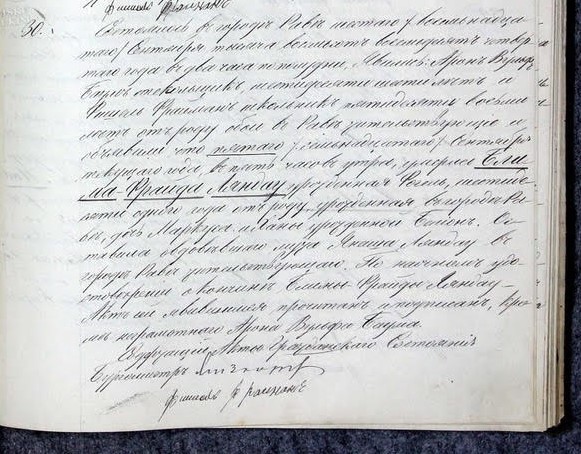 Фишель Фрайманъ
30.
Состоялось въ городѣ Равѣ шестаго / восьмнадца
таго / Сентября тысяча восемьсотъ восемьдесятъ четвер
таго года въ два часа по полудни. Явились: Аронъ Вульфъ
Баумъ стекольщикъ, шестидесяти шести лѣтъ и
Фишель Фрайманъ школьникъ пятидесяти восьми
лѣтъ отъ роду обои въ Равѣ жительствующіе и
объявили что шестаго / восьмнадцатаго / Сентября
текущаго года, въ пять часовъ утра, умерла Бли
ма-Фрайда Ляндау урожденная шестиде
сяти одного года отъ роду урожденная въ городѣ Ра
вѣ, дочь Маркуса и Ханы урожденной Ос
тавила овдовѣвшаго мужа Ляндау въ
городѣ Равѣ жительствующаго. По наличномъ удо
стовѣреніи о кончинѣ Блимы Фрайды Ляндау
Актъ сей явившимся прочитанъ и подписанъ, кро
мѣ неграмотнаго Арона Вульфа Баума.
Содержащій Акты Гражданскаго Состоянія
Бургомистръ
Фишель Фрайманъ